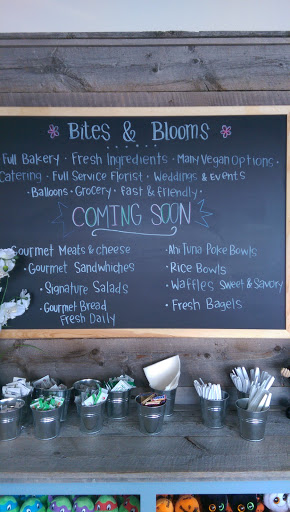 Bites & Blooms
Full Bakery · Fresh Ingredients · Many Vegan Options ·
Catering · Full Service Florist · Weddings & Events
· Balloons · Grocery · fast & friendly ·
COMING SOON
Gourmet Meats & cheese
· Gourmet Sandwhiches
· Signature Salads
· Gourmet Bread
Fresh Daily
· Ahi Tuna Poke Bowls
· Rice Bowls
· Waffles Sweet & Savory
· Fresh Bagels